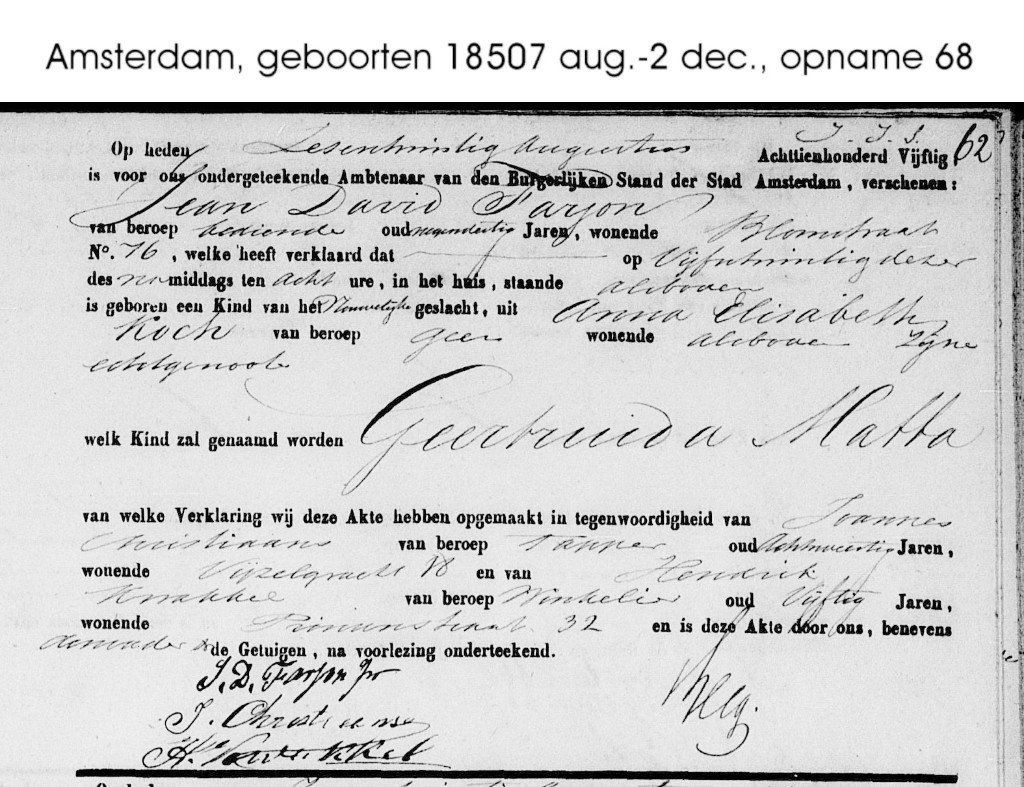 Amsterdam, geboorten 18507 aug.-2 dec., opname 68
62
Op heden Zesentwintig Augustus Achttienhonderd Vijftig
is voor ons ondergeteekende Ambtenaar van den Burgerlijken Stand der Stad Amsterdam, verschenen:
Jean David Farjon
van beroep bediende oud negendertig Jaren, wonende Blomstraat
No. 76, welke heeft verklaard dat op Vijfentwintig dezer
des namiddags ten acht ure, in het huis, staande alsboven
is geboren een Kind van het Vrouwelijke geslacht, uit Anna Elisabeth
Koch van beroep geen wonende alsboven Zijne
echtgenoote
welk Kind zal genaamd worden Geertruida Matta
van welke Verklaring wij deze Akte hebben opgemaakt in tegenwoordigheid van Joannes
Christiaans van beroep Tapper oud Achtenveertig Jaren,
wonende Vijzelgracht en van Hendrik
van beroep Winkelier oud Vijftig Jaren,
wonende 32 en is deze Akte door ons, benevens
de Getuigen, na voorlezing onderteekend.
J. D. Farjon Jr
J. Christiaanse